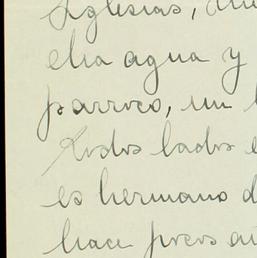 Iglesias,
ella agua y
parroco, un
todos lados e
es hermano d
hace pocos añ